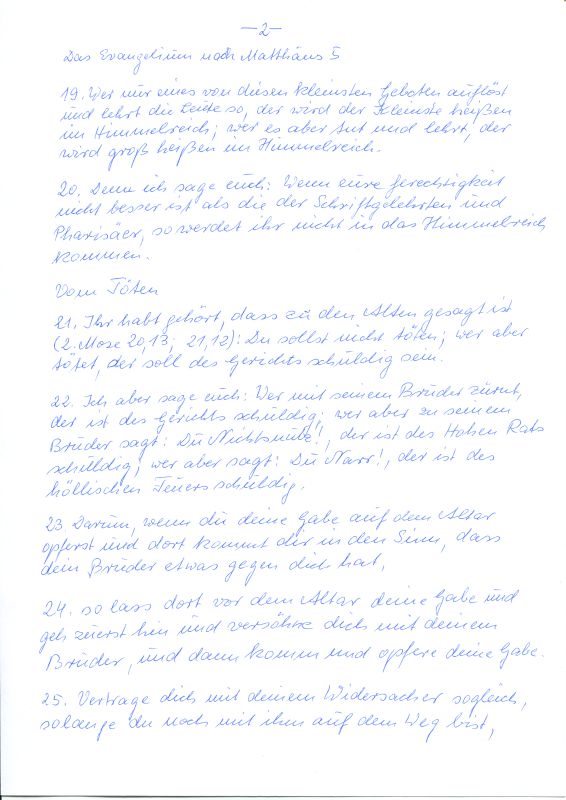 —2—
Das Evangelium nach Matthäus 5
19. Wer nur eines von diesen kleinsten Geboten auflöst
und lehrt die Leute so, der wird der Kleinste heißen
im Himmelreich; wer es aber tut und lehrt, der
wird groß heißen im Himmelreich.
20. Denn ich sage euch: Wenn eure Gerechtigkeit
nicht besser ist als die der Schriftgelehrten und
Pharisäer, so werdet ihr nicht in das Himmelreich
kommen.
Vom Töten
21. Ihr habt gehört, dass zu den Alten gesagt ist
(2. Mose 20,13; 21,12): Du sollst nicht töten; wer aber
tötet, der soll des Gerichts schuldig sein.
22. Ich aber sage euch: Wer mit seinem Bruder zürnt,
der ist des Gerichts schuldig; wer aber zu seinem
Bruder sagt: Du Nichtsnutz!, der ist des Hohen Rats
schuldig; wer aber sagt: Du Narr!, der ist des
höllischen Feuers schuldig.
23 Darum, wenn du deine Gabe auf dem Altar
opferst und dort kommt dir in den Sinn, dass
dein Bruder etwas gegen dich hat,
24. so lass dort vor dem Altar deine Gabe und
geh zuerst hin und versöhne dich mit deinem
Bruder, und dann komm und opfere deine Gabe.
25. Vertrage dich mit deinem Widersacher sogleich,
solange du noch mit ihm auf dem Weg bist,